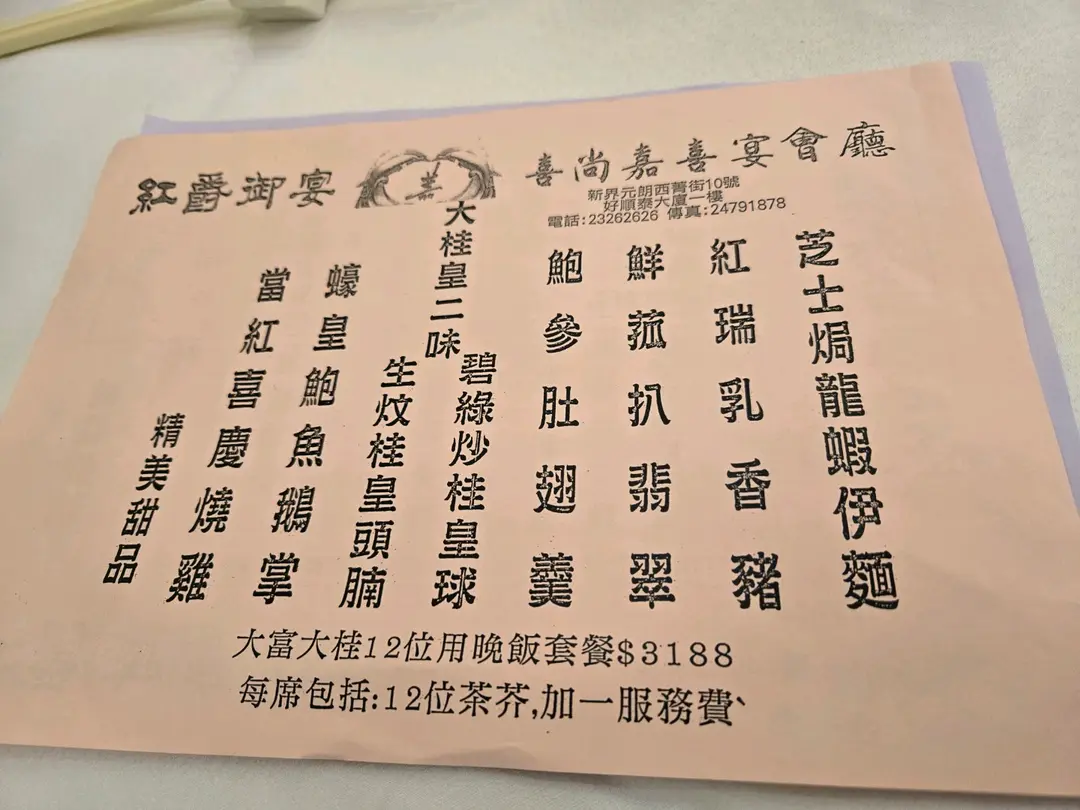 紅爵御宴
喜
喜尚嘉喜宴會廳
新界元朗西菁街10號
好順泰大廈一樓
電話:23262626 傳真:24791878
芝士焗龍蝦伊麵
紅瑞乳香豬
鮮菰扒翡翠
鮑參肚翅羹
大桂皇二味
碧綠炒桂皇球
生炆桂皇頭腩
蠔皇鮑魚鵝掌
當紅喜慶燒雞
精美甜品
大富大桂12位用晚飯套餐$3188
每席包括:12位茶芥,加一服務費、